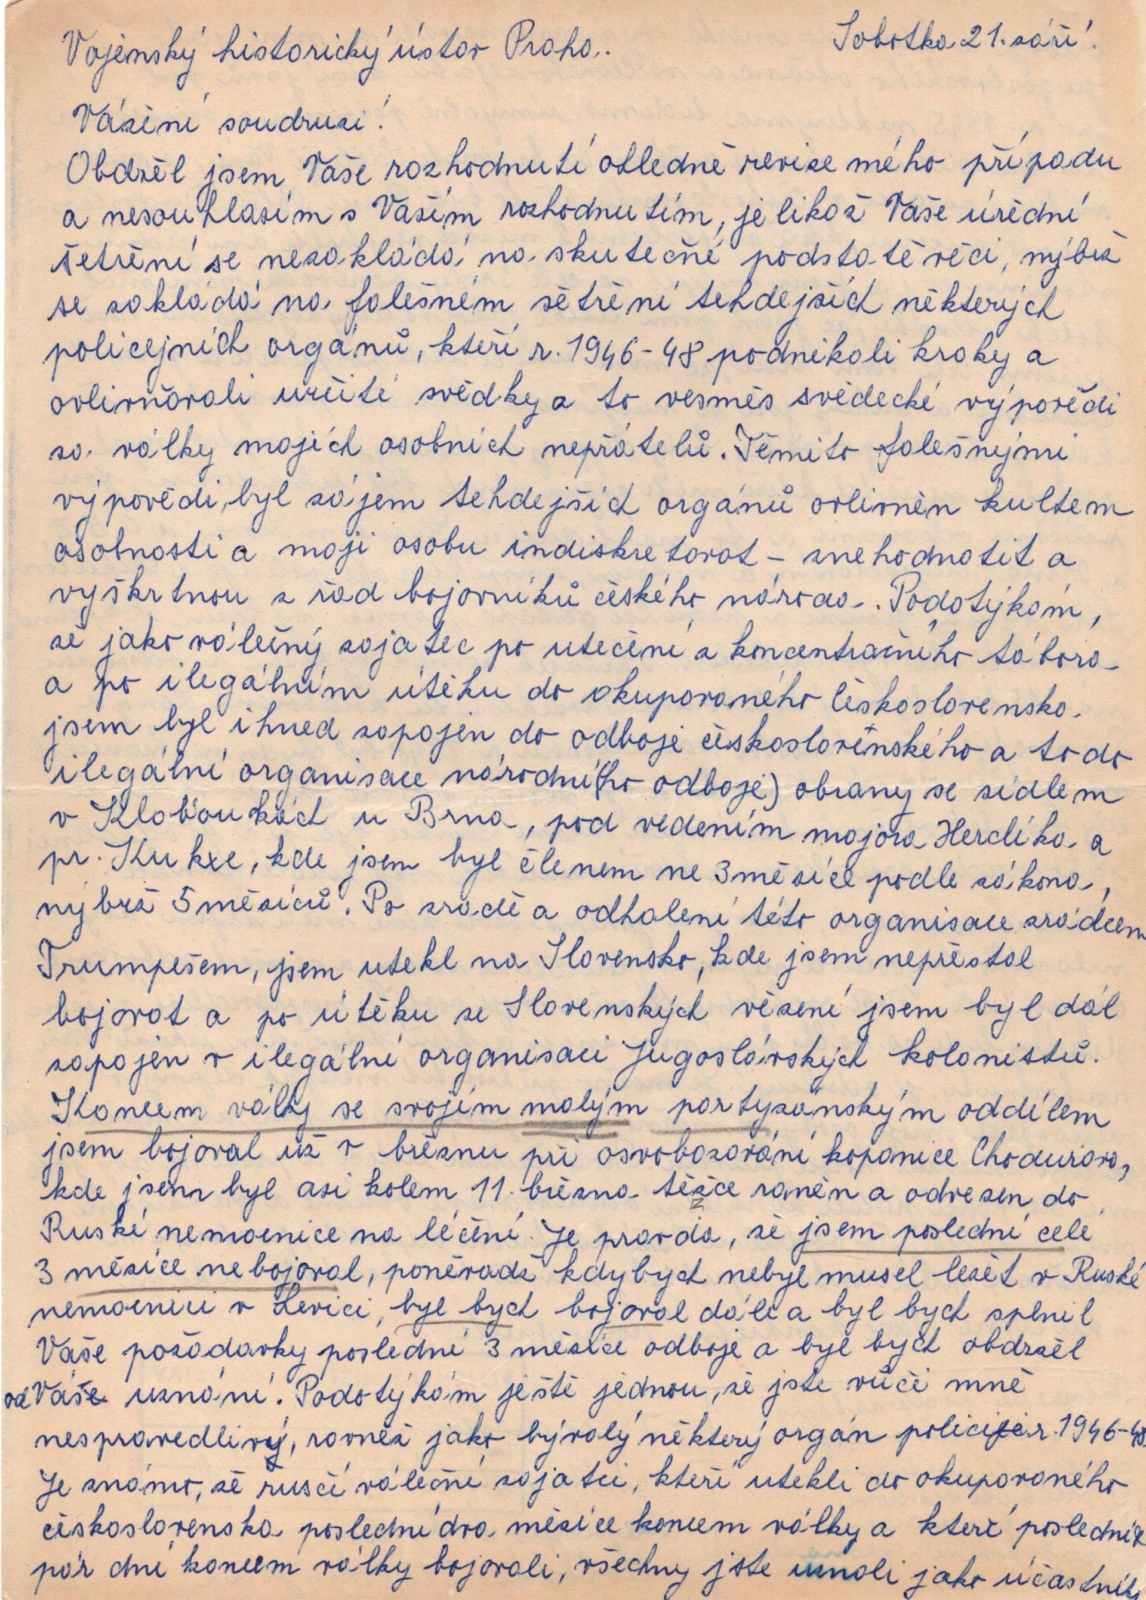 Vojenský historický ústav Praha.
Sobotka 21. září.
Vážení soudruzi!
Obdržel jsem Vaše rozhodnutí ohledně revize mého případu
a nesouhlasím s Vaším rozhodnutím, jelikož Vaše úřední
šetření se nezakládá na skutečné podstatě věci, nýbrž
se zakládá na falešném šetření tehdejších některých
policejních orgánů, kteří r. 1946-48 podnikali kroky a
ovlivňovali určité svědky a to vesměs svědecké výpovědi
za války mojich osobních nepřátelů. Těmito falešnými
výpovědi, byl zájem tehdejších orgánů ovlivněn kultem
osobnosti a moji osobu indiskretovat - znehodnotit a
vyškrtnou z řad bojovníků českého národa. Podotýkám,
že jako válečný zajatec po utečení z koncentračního tábora
a po ilegálním útěku do okupovaného československa
jsem byl ihned zapojen do odboje československého a to do
ilegální organisace národní(ho odboje) obrany se sídlem
v Kloboukách u Brna, pod vedením majora Herclíka a
pr. Kukxe, kde jsem byl členem ne 3 měsíce podle zákona,
nýbrž 5 měsíců. Po zradě a odhalení této organisace zrádcem
Trumpešem, jsem utekl na Slovensko, kde jsem nepřestal
bojovat a po útěku ze Slovenských vězení jsem byl dál
zapojen v ilegální organisaci Jugoslávských kolonistů.
Koncem války se svojím malým partyzánským oddílem
jsem bojoval už v březnu při osvobozování kopanice Chodurova,
kde jsem byl asi kolem 11. března těžce raněn a odvezen do
Ruské nemocnice na léčení. Je pravda, že jsem poslední celé
3 měsíce nebojoval, poněvadž kdybych nebyl musel ležet v Ruské
nemocnici v Levici, byl bych bojoval dále a byl bych splnil
Vaše požadavky poslední 3 měsíce odboje a byl bych obdržel
od Váše uznání. Podotýkám ještě jednou, že jste vůči mně
nespravedlivý, rovněž jako bývalý některý orgán policie r. 1946-48
Je známo, že rusčí váleční zajatci, kteří utekli do okupovaného
československa poslední dva měsíce koncem války a kteří poslední
pár dní koncem války bojovali, všechny jste uznali jako účastníky